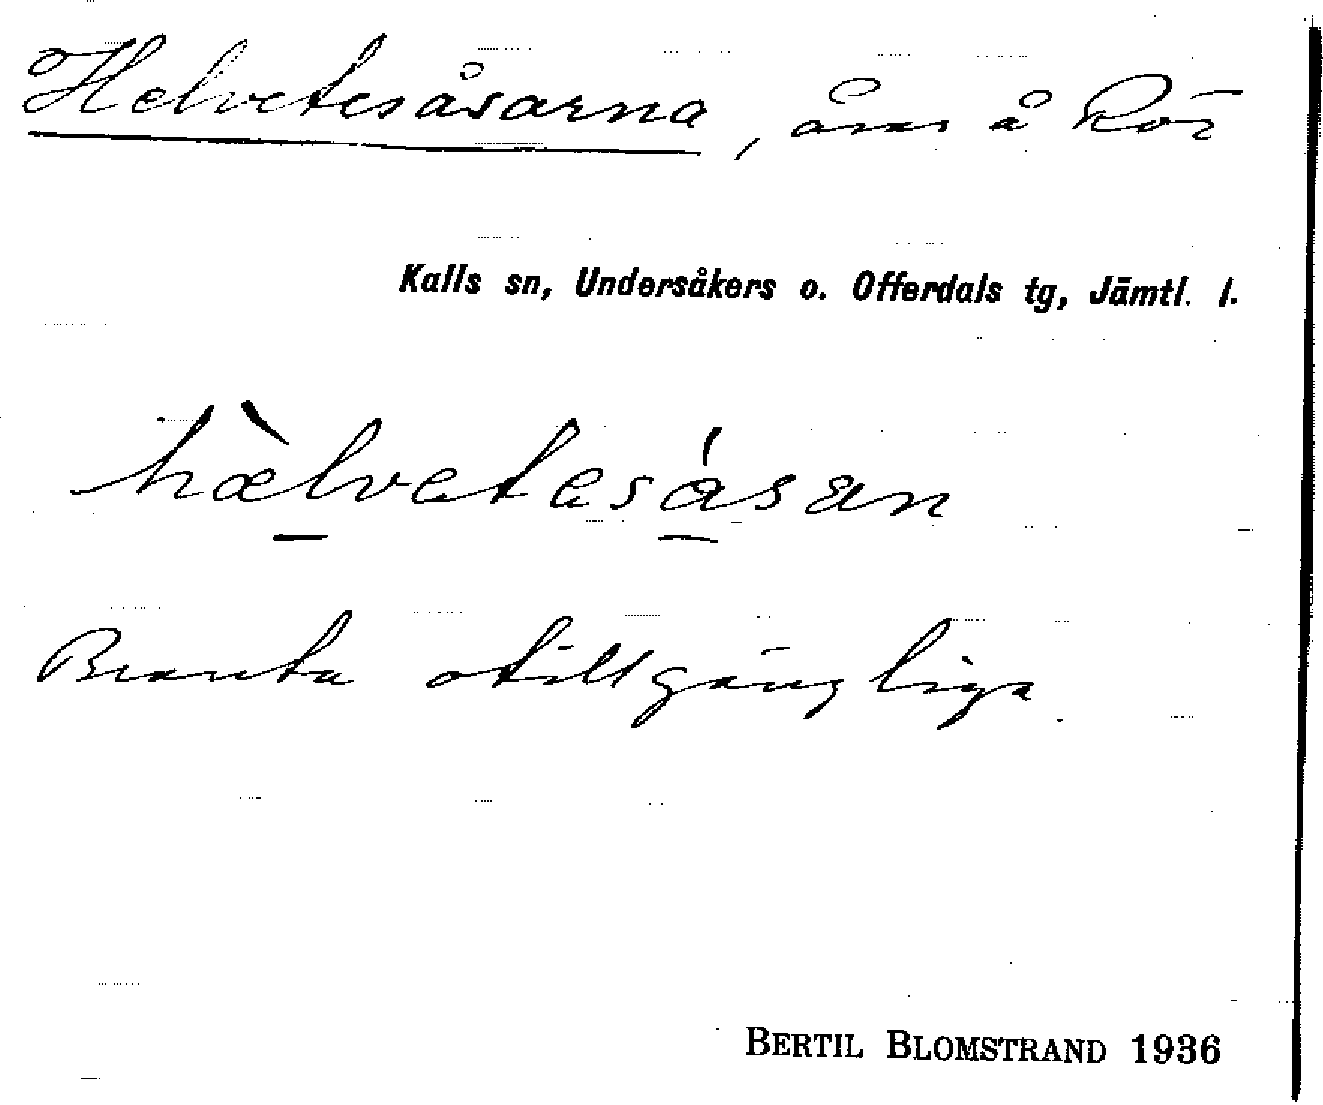 Helvetesåsarna, åsar å Rör
Kalls sn, Undersåkers o. Offerdals tg, Jämtl. l.
hæ̀lvetesåsan
Branta otillgängliga.
BERTIL BLOMSTRAND 1936